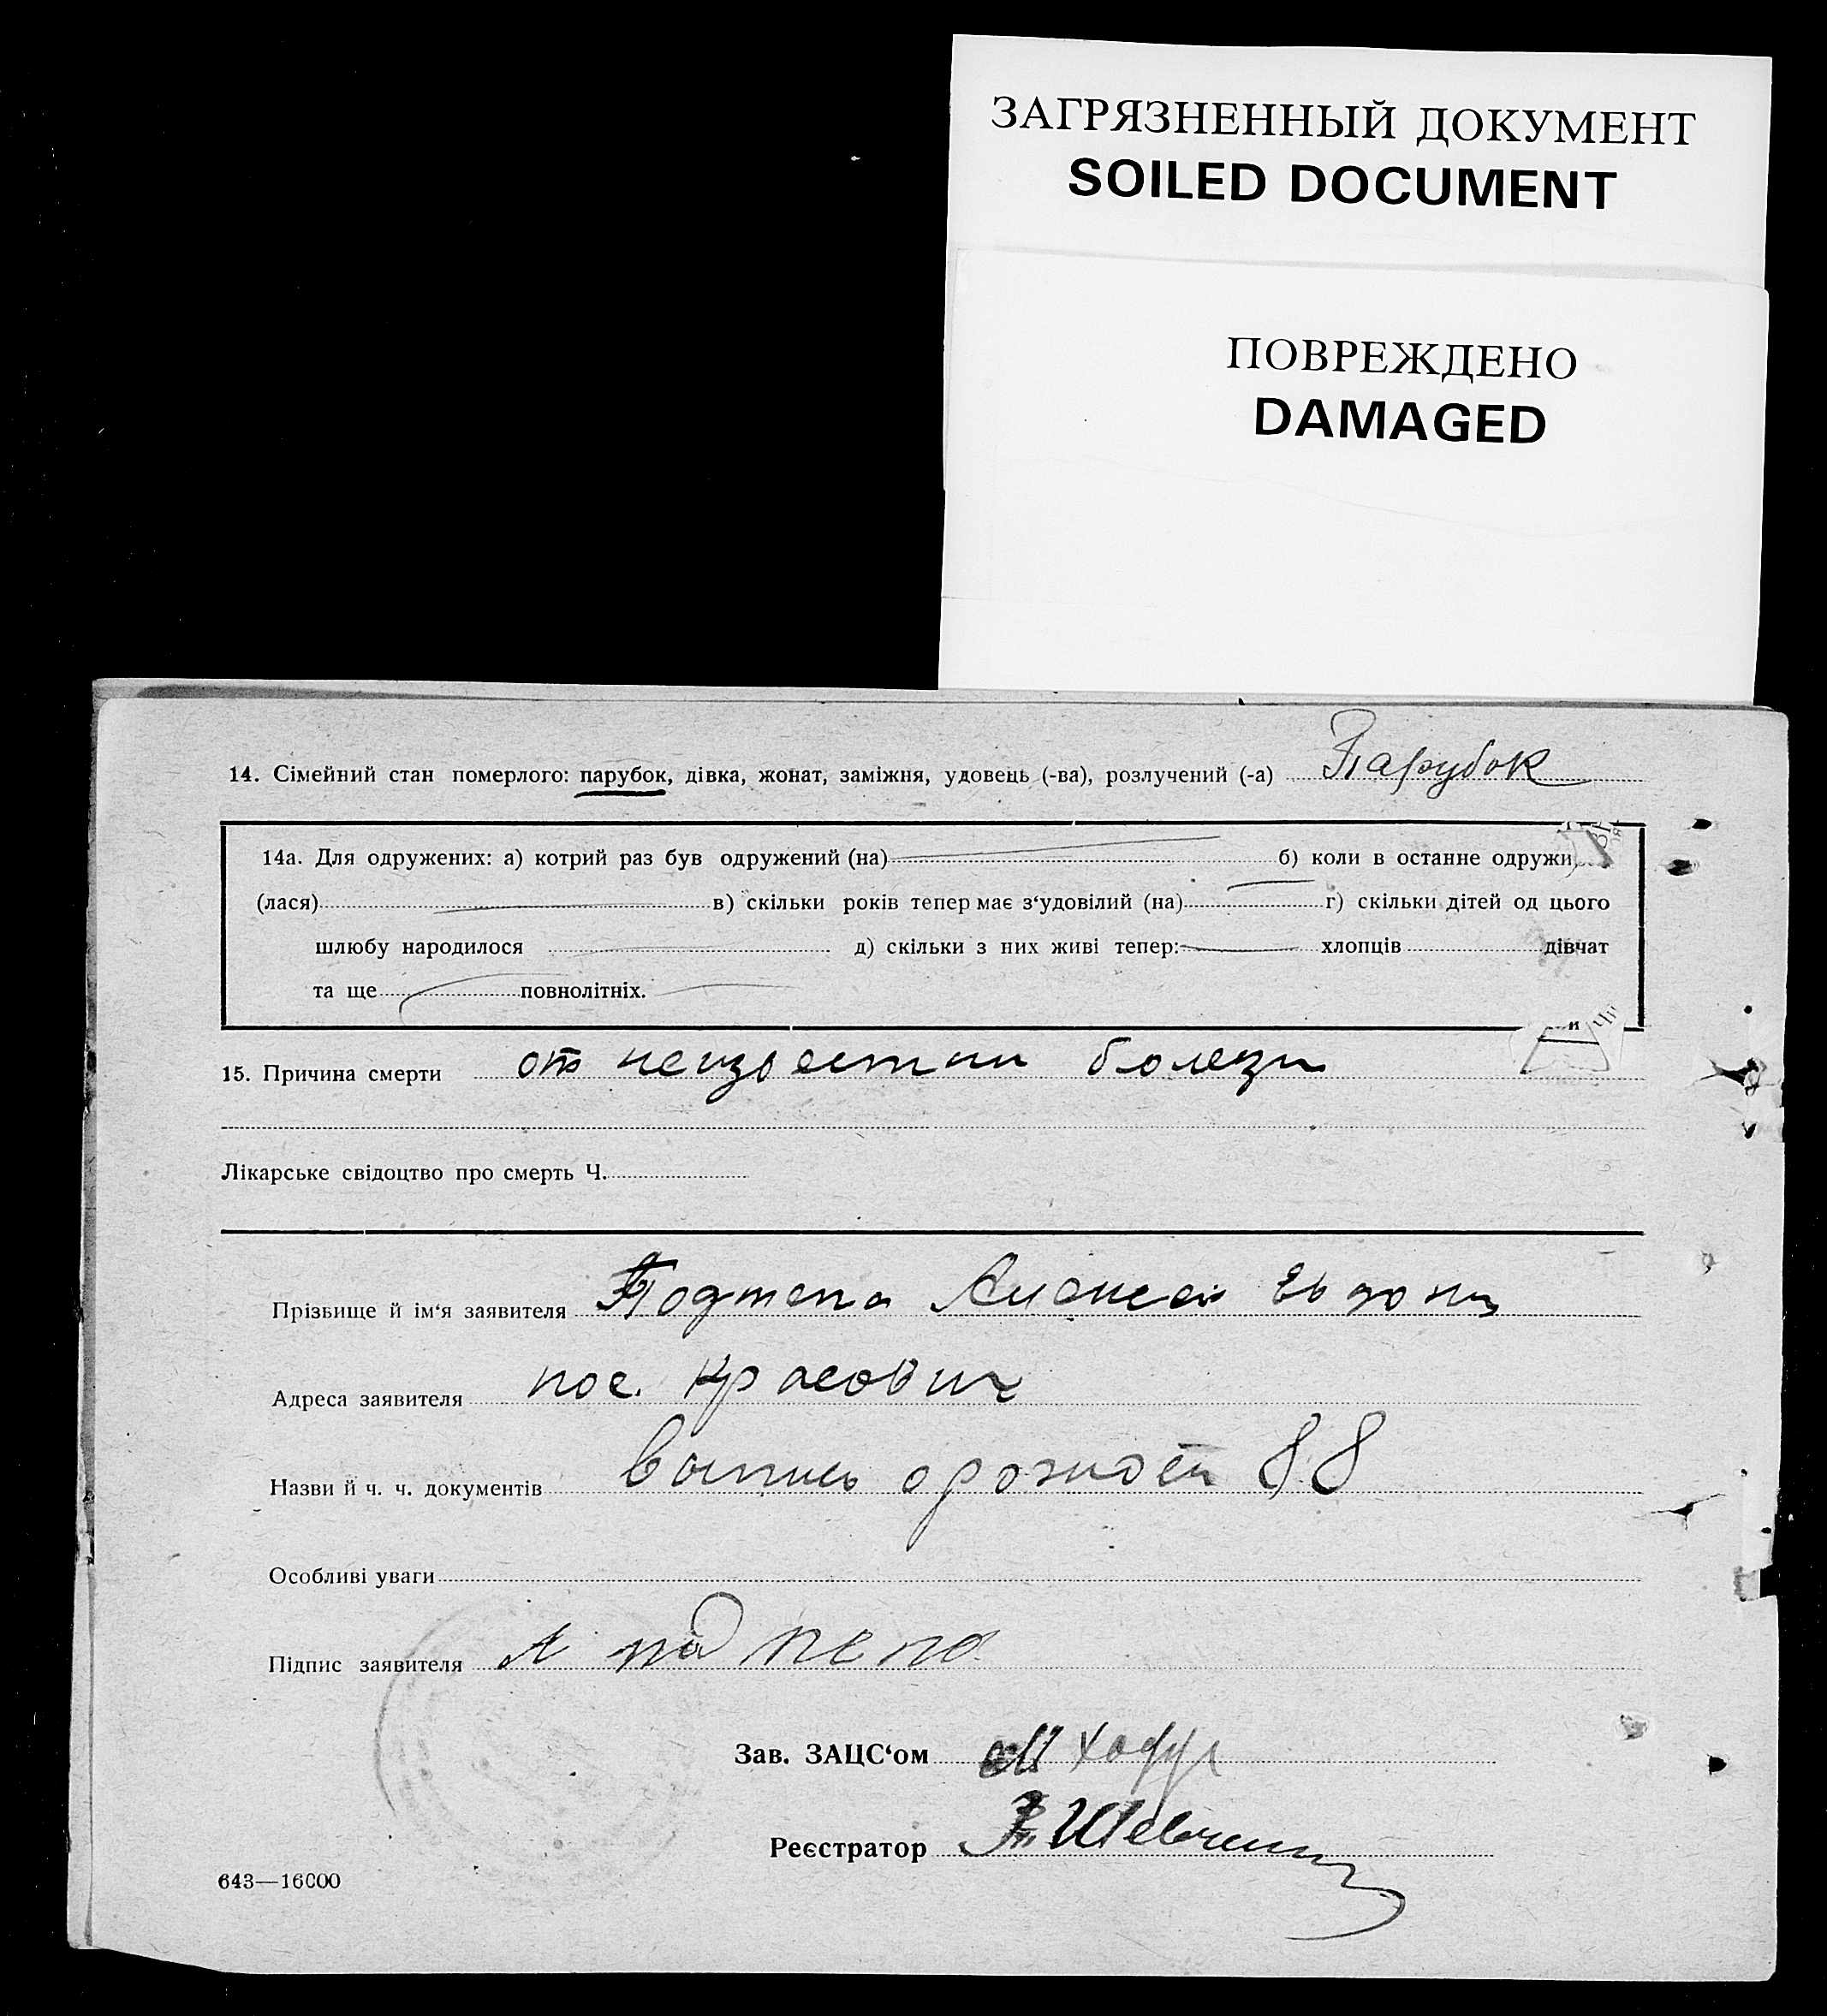 ЗАГРЯЗНЕННЫЙ ДОКУМЕНТ
SOILED DOCUMENT
ПОВРЕЖДЕНО
DAMAGED
14. Сімейний стан померлого: парубок, дівка, жонат, заміжня, удовець (-ва), розлучений (-а) Парубок
14а. Для одружених: а) котрий раз був одружений (на) б) коли в останне одружи
(лася) в) скільки років тепер має з‘удовілий (на) г) скільки дітей од цього
шлюбу народилося д) скільки з них живі тепер: хлопців дівчат
та ще повнолітніх.
15. Причина смерти от неизвестни болезни
Лікарське свідоцтво про смерть Ч.
Прізвище й ім‘я заявителя Подтепа Алексей
Адреса заявителя пос.
Назви й ч. ч. документів 88
Особливі уваги
Підпис заявителя
Зав. ЗАЦС‘ом
Реєстратор Шевченко
643—16000